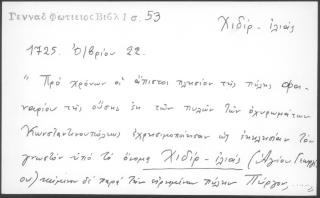 Γενναδ Φωτιεῖος Βιβλ 1 σ. 53
Χιδίρ - ἰλιάς
1725. Ὀ/βρίου 22.
"Πρό χρόνων οἱ ἄπιστοι πλησίον τῆς πύλης Φα-
ναρίου τῆς οὔσης ἐκ τῶν πυλῶν τῶν ὀχυρωμάτων
Κωνσταντινουπόλεως ἐχρησιμοποίησαν ὡς ἐκκλησίαν τόν
γνωστόν ὑπό τό ὄνομα Χιδίρ - ἰλιάς (Ἁγίου Γεωργί
ου) κείμενον δέ παρά τῶν εἰρημένων πύλην Πύργον, ....."